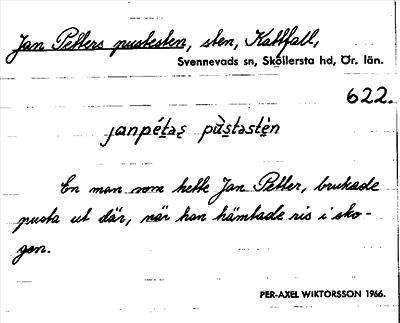 Jan Petters pustesten, sten, Kattfall,
Svennevads sn, Sköllersta hd, Ör. län.
622.
janpétas pùstastèn
En man som hette Jan Petter, brukade
pusta ut där, när han hämtade ris i sko-
gen.
PER-AXEL WIKTORSSON 1966.